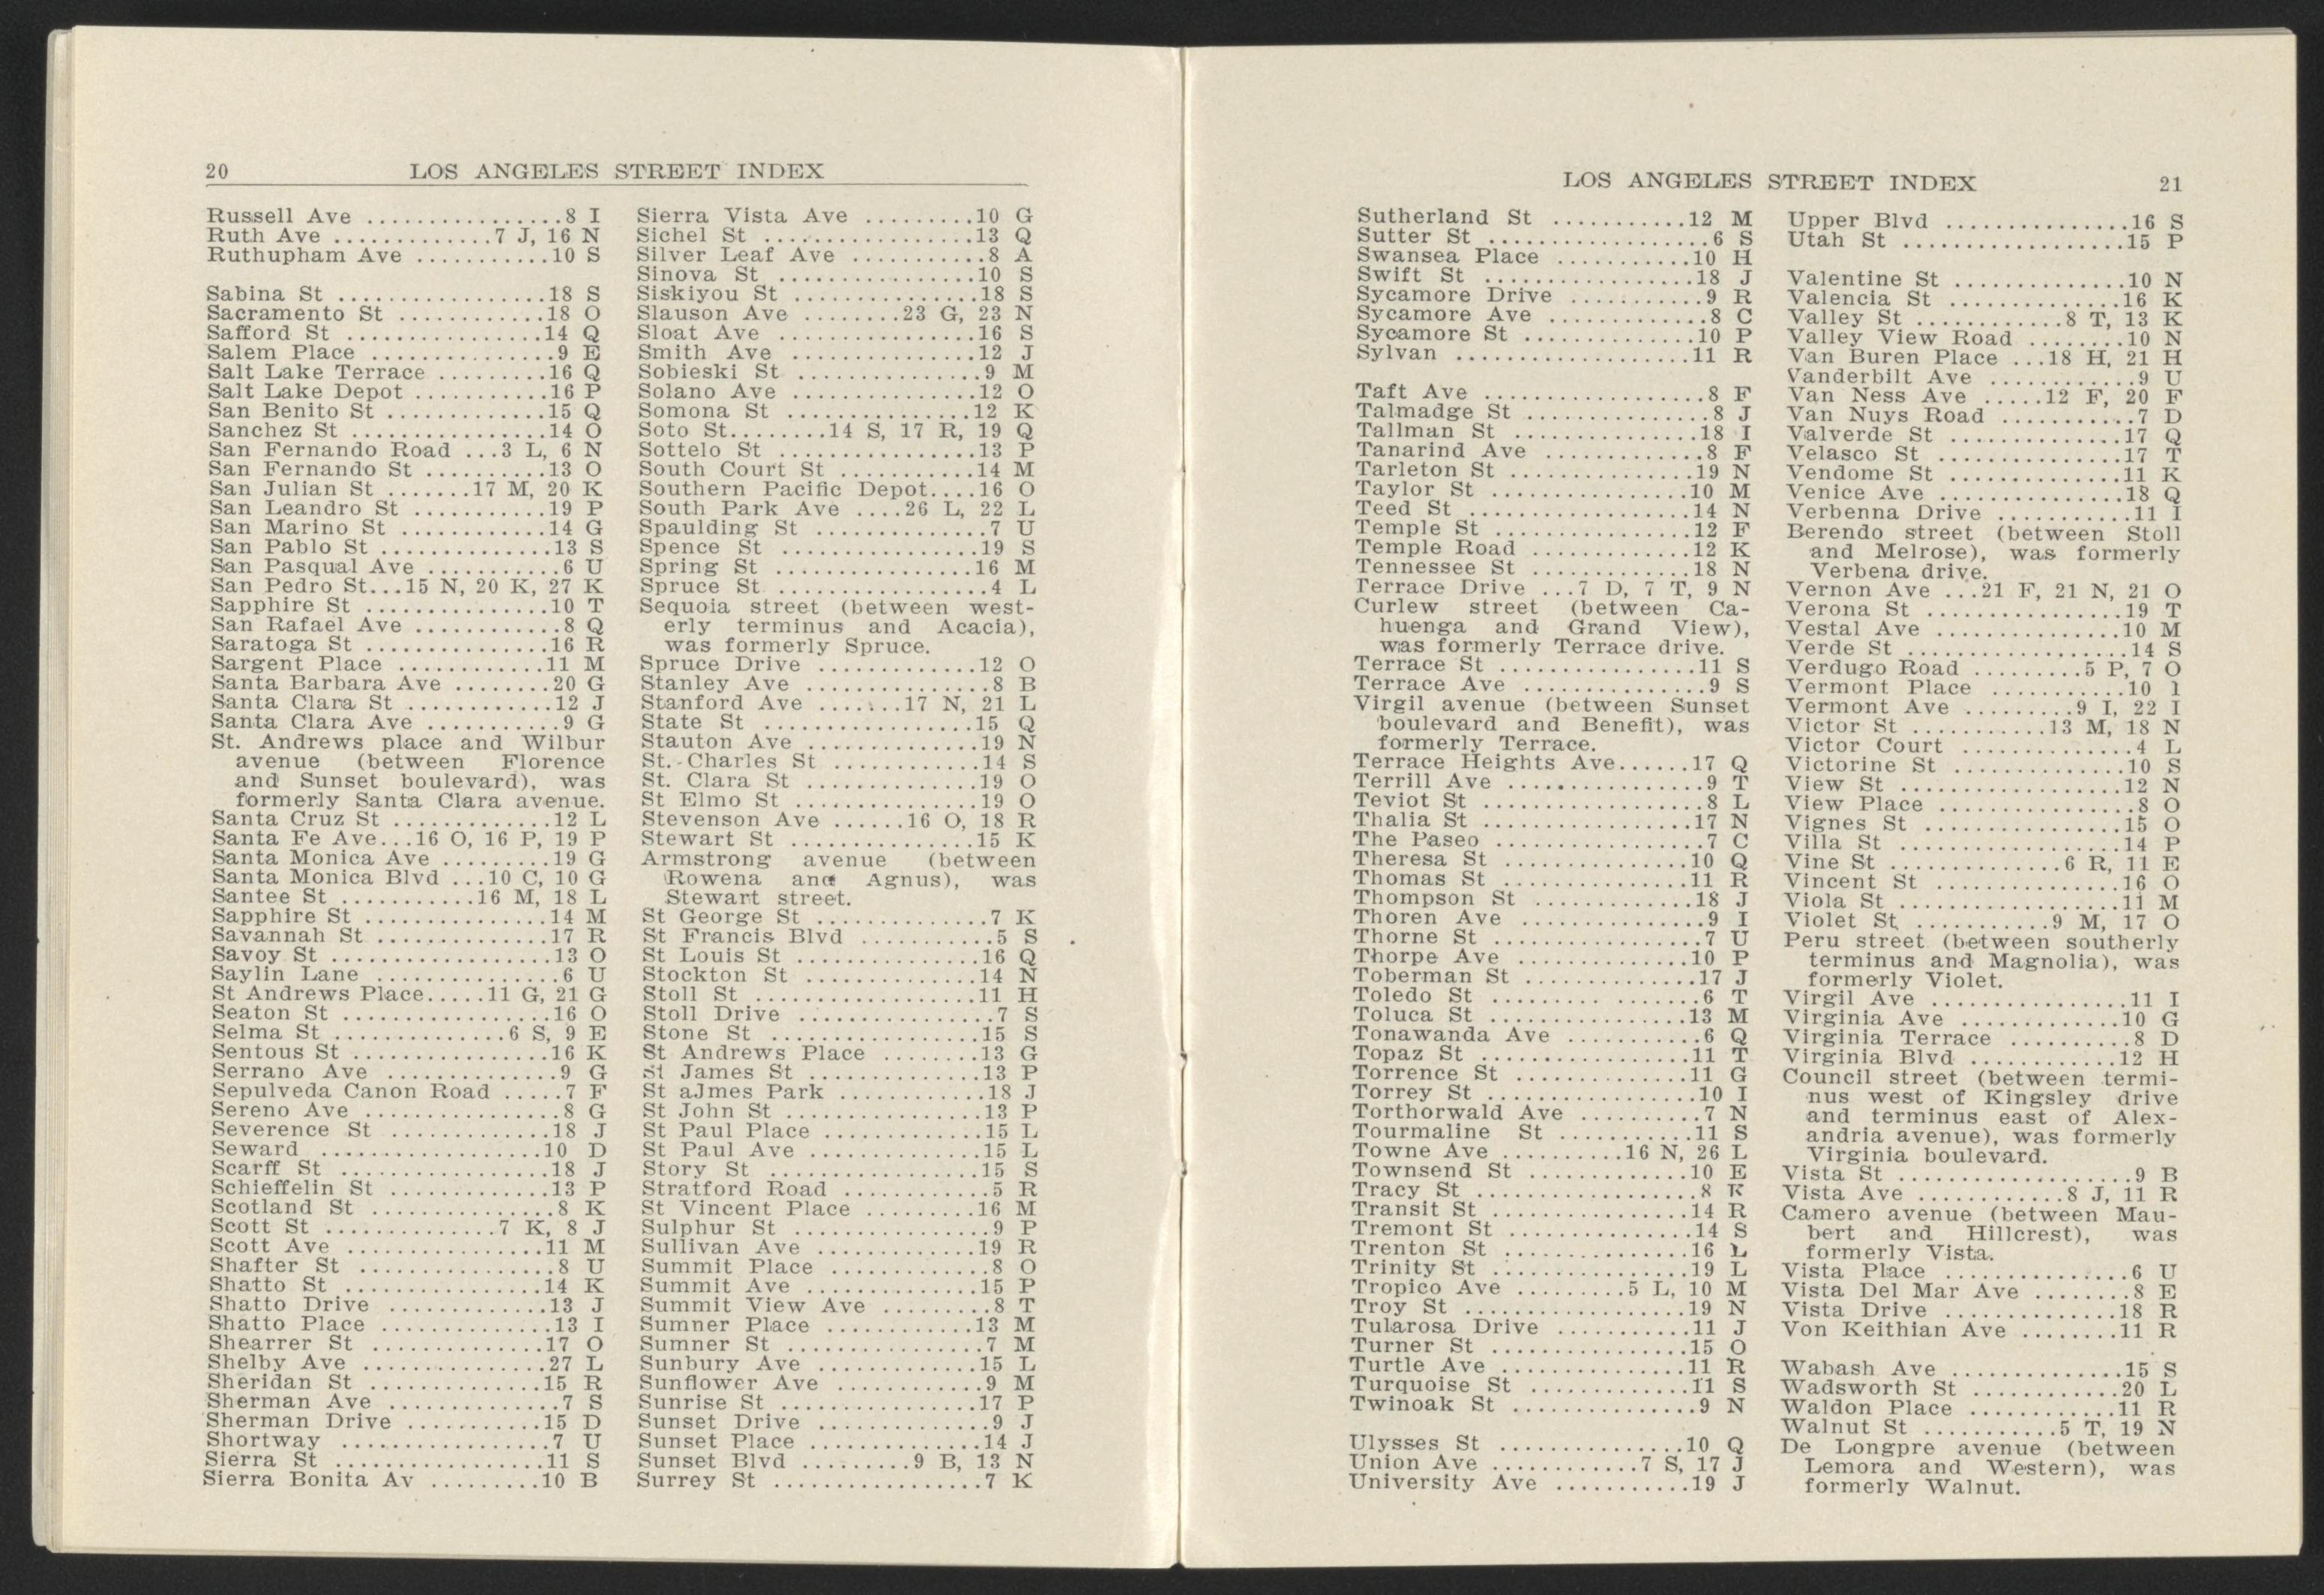 20 LOS ANGELES STREET INDEX
Russell Ave ................8 I
Ruth Ave .............7 J, 16 N
Ruthupham Ave ...........10 S
Sabina St .................18 S
Sacramento St ............18 O
Safford St ................14 Q
Salem Place ...............9 E
Salt Lake Terrace .........16 Q
Salt Lake Depot ...........16 P
San Benito St .............15 Q
Sanchez St ................14 O
San Fernando Road ...3 L, 6 N
San Fernando St ..........13 O
San Julian St .......17 M, 20 K
San Leandro St ...........19 P
San Marino St .............14 G
San Pablo St ..............13 S
San Pasqual Ave ............6 U
San Pedro St...15 N, 20 K, 27 K
Sapphire St ...............10 T
San Rafael Ave ............8 Q
Saratoga St ...............16 R
Sargent Place ............11 M
Santa Barbara Ave ........20 G
Santa Clara St ............12 J
Santa Clara Ave ...........9 G
St. Andrews place and Wilbur
avenue (between Florence
and Sunset boulevard), was
formerly Santa Clara avenue.
Santa Cruz St .............12 L
Santa Fe Ave...16 O, 16 P, 19 P
Santa Monica Ave .........19 G
Santa Monica Blvd ...10 C, 10 G
Santee St ...........16 M, 18 L
Sapphire St ...............14 M
Savannah St ..............17 R
Savoy St ..................13 O
Saylin Lane ...............6 U
St Andrews Place.....11 G, 21 G
Seaton St .................16 O
Selma St ..............6 S, 9 E
Sentous St ................16 K
Serrano Ave ..............9 G
Sepulveda Canon Road .....7 F
Sereno Ave ................8 G
Severence St .............18 J
Seward ...................10 D
Scarff St .................18 J
Schieffelin St .............13 P
Scotland St ...............8 K
Scott St ..............7 K, 8 J
Scott Ave .................11 M
Shafter St .................8 U
Shatto St .................14 K
Shatto Drive .............13 J
Shatto Place ..............13 I
Shearrer St ...............17 O
Shelby Ave ................27 L
Sheridan St ...............15 R
Sherman Ave ...............7 S
Sherman Drive ............15 D
Shortway ..................7 U
Sierra St ..................11 S
Sierra Bonita Av .........10 B
Sierra Vista Ave .........10 G
Sichel St ..................13 Q
Silver Leaf Ave ............8 A
Sinova St .................10 S
Siskiyou St ................18 S
Slauson Ave ........23 G, 23 N
Sloat Ave .................16 S
Smith Ave ................12 J
Sobieski St ................9 M
Solano Ave ................12 O
Somona St ...............12 K
Soto St........14 S, 17 R, 19 Q
Sottelo St .................13 P
South Court St ............14 M
Southern Pacific Depot....16 O
South Park Ave ....26 L, 22 L
Spaulding St ...............7 U
Spence St .................19 S
Spring St .................16 M
Spruce St ..................4 L
Sequoia street (between west-
erly terminus and Acacia),
was formerly Spruce.
Spruce Drive ..............12 O
Stanley Ave ................8 B
Stanford Ave .......17 N, 21 L
State St ...................15 Q
Stauton Ave ...............19 N
St. Charles St .............14 S
St. Clara St ...............19 O
St Elmo St ................19 O
Stevenson Ave ......16 O, 18 R
Stewart St ................15 K
Armstrong avenue (between
Rowena and Agnus), was
Stewart street.
St George St ...............7 K
St Francis Blvd ............5 S
St Louis St ................16 Q
Stockton St ................14 N
Stoll St ...................11 H
Stoll Drive .................7 S
Stone St ..................15 S
St Andrews Place ........13 G
St James St ...............13 P
St aJmes Park .............18 J
St John St .................13 P
St Paul Place ..............15 L
St Paul Ave ...............15 L
Story St ...................15 S
Stratford Road .............5 R
St Vincent Place ..........16 M
Sulphur St ..................9 P
Sullivan Ave ...............19 R
Summit Place ..............8 O
Summit Ave ...............15 P
Summit View Ave .........8 T
Sumner Place .............13 M
Sumner St .................7 M
Sunbury Ave ..............15 L
Sunflower Ave .............9 M
Sunrise St .................17 P
Sunset Drive ...............9 J
Sunset Place ...............14 J
Sunset Blvd .........9 B, 13 N
Surrey St ..................7 K
LOS ANGELES STREET INDEX 21
Sutherland St ............12 M
Sutter St ...................6 S
Swansea Place ............10 H
Swift St ...................18 J
Sycamore Drive ............9 R
Sycamore Ave .............8 C
Sycamore St ..............10 P
Sylvan ....................11 R
Taft Ave ...................8 F
Talmadge St ................8 J
Tallman St ................18 I
Tanarind Ave ..............8 F
Tarleton St ................19 N
Taylor St ..................10 M
Teed St ....................14 N
Temple St .................12 F
Temple Road ..............12 K
Tennessee St ..............18 N
Terrace Drive ...7 D, 7 T, 9 N
Curlew street (between Ca-
huenga and Grand View),
was formerly Terrace drive.
Terrace St .................11 S
Terrace Ave ................9 S
Virgil avenue (between Sunset
boulevard and Benefit), was
formerly Terrace.
Terrace Heights Ave......17 Q
Terrill Ave .................9 T
Teviot St ...................8 L
Thalia St ..................17 N
The Paseo ..................7 C
Theresa St .................10 Q
Thomas St .................11 R
Thompson St ..............18 J
Thoren Ave ................9 I
Thorne St ..................7 U
Thorpe Ave ................10 P
Toberman St ...............17 J
Toledo St ......... .......6 T
Toluca St .................13 M
Tonawanda Ave ............6 Q
Topaz St ..................11 T
Torrence St ...............11 G
Torrey St ..................10 I
Torthorwald Ave ..........7 N
Tourmaline St ............11 S
Towne Ave ..........16 N, 26 L
Townsend St ..............10 E
Tracy St ...................8 K
Transit St ..................14 R
Tremont St ................14 S
Trenton St .................16 L
Trinity St ..................19 L
Tropico Ave .........5 L, 10 M
Troy St ....................19 N
Tularosa Drive ............11 J
Turner St ..................15 O
Turtle Ave .................11 R
Turquoise St ...............11 S
Twinoak St .................9 N
Ulysses St .................10 Q
Union Ave .............7 S, 17 J
University Ave ............19 J
Upper Blvd ................16 S
Utah St ....................15 P
Valentine St ...............10 N
Valencia St ................16 K
Valley St .............8 T, 13 K
Valley View Road .........10 N
Van Buren Place ...18 H, 21 H
Vanderbilt Ave .............9 U
Van Ness Ave .....12 F, 20 F
Van Nuys Road ............7 D
Valverde St ................17 Q
Velasco St .................17 T
Vendome St ................11 K
Venice Ave .................18 Q
Verbenna Drive ............11 I
Berendo street (between Stoll
and Melrose), was formerly
Verbena drive.
Vernon Ave ...21 F, 21 N, 21 O
Verona St ..................19 T
Vestal Ave .................10 M
Verde St ...................14 S
Verdugo Road .........5 P, 7 O
Vermont Place ............10 1
Vermont Ave .........9 I, 22 I
Victor St ............13 M, 18 N
Victor Court ................4 L
Victorine St ................10 S
View St ....................12 N
View Place .................8 O
Vignes St ..................15 O
Villa St ....................14 P
Vine St ...............6 R, 11 E
Vincent St .................16 O
Viola St ....................11 M
Violet St ............9 M, 17 O
Peru street (between southerly
terminus and Magnolia), was
formerly Violet.
Virgil Ave ..................11 I
Virginia Ave ...............10 G
Virginia Terrace ............8 D
Virginia Blvd ..............12 H
Council street (between termi-
nus west of Kingsley drive
and terminus east of Alex-
andria avenue), was formerly
Virginia boulevard.
Vista St ....................9 B
Vista Ave ............8 J, 11 R
Camero avenue (between Mau-
bert and Hillcrest), was
formerly Vista.
Vista Place .................6 U
Vista Del Mar Ave ........8 E
Vista Drive ................18 R
Von Keithian Ave ........11 R
Wabash Ave ...............15 S
Wadsworth St .............20 L
Waldon Place .............11 R
Walnut St ............5 T, 19 N
De Longpre avenue (between
Lemora and Western), was
formerly Walnut.